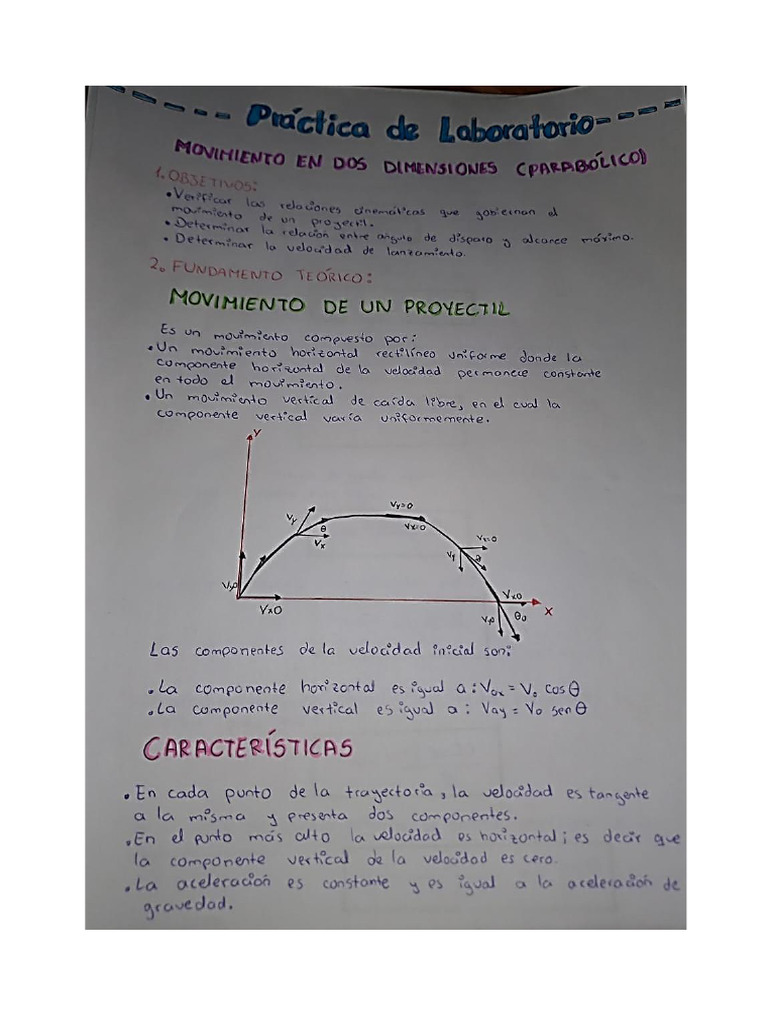 Práctica de Laboratorio
MOVIMIENTO EN DOS DIMENSIONES (PARABÓLICO)
1. OBJETIVOS:
• Verificar las relaciones cinemáticas que gobiernan el
movimiento de un proyectil.
• Determinar la relación entre angulo de disparo y alcance máximo.
• Determinar la velocidad de lanzamiento.
2. FUNDAMENTO TEÓRICO:
MOVIMIENTO DE UN PROYECTIL
Es un movimiento compuesto por:
• Un movimiento horizontal rectilíneo uniforme donde la
componente horizontal de la velocidad permanece constante
en todo el movimiento.
• Un movimiento vertical de caída libre, en el cual la
componente vertical varía uniformemente.
Y
Vy=0
Vy
θ
Vx
Vx=0
Vx=0
Vy
Vyo
Vx0
Vx0
X
Vyo
θ0
Las componentes de la velocidad inicial son:
• La componente horizontal es igual a: Vox = Vo cos θ
• La componente vertical es igual a: Vay = Vo sen θ
CARACTERÍSTICAS
• En cada punto de la trayectoria, la velocidad es tangente
a la misma y presenta dos componentes.
• En el punto más alto la velocidad es horizontal; es decir que
la componente vertical de la velocidad es cero.
• La aceleración es constante y es igual a la aceleración de
gravedad.